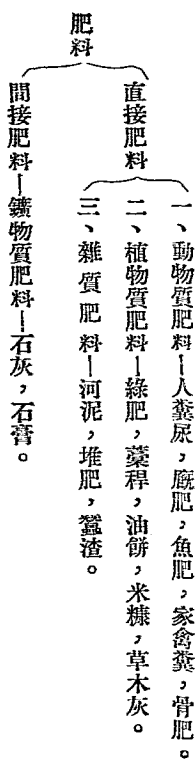 肥料
直接肥料
一、動物質肥料—人糞尿，廐肥，魚肥，家禽糞，骨肥。
二、植物質肥料—綠肥，藁稈，油餅，米糠，草木灰。
三、雜質肥料—河泥，堆肥，蠶渣。
間接肥料—鑛物質肥料—石灰，石膏。